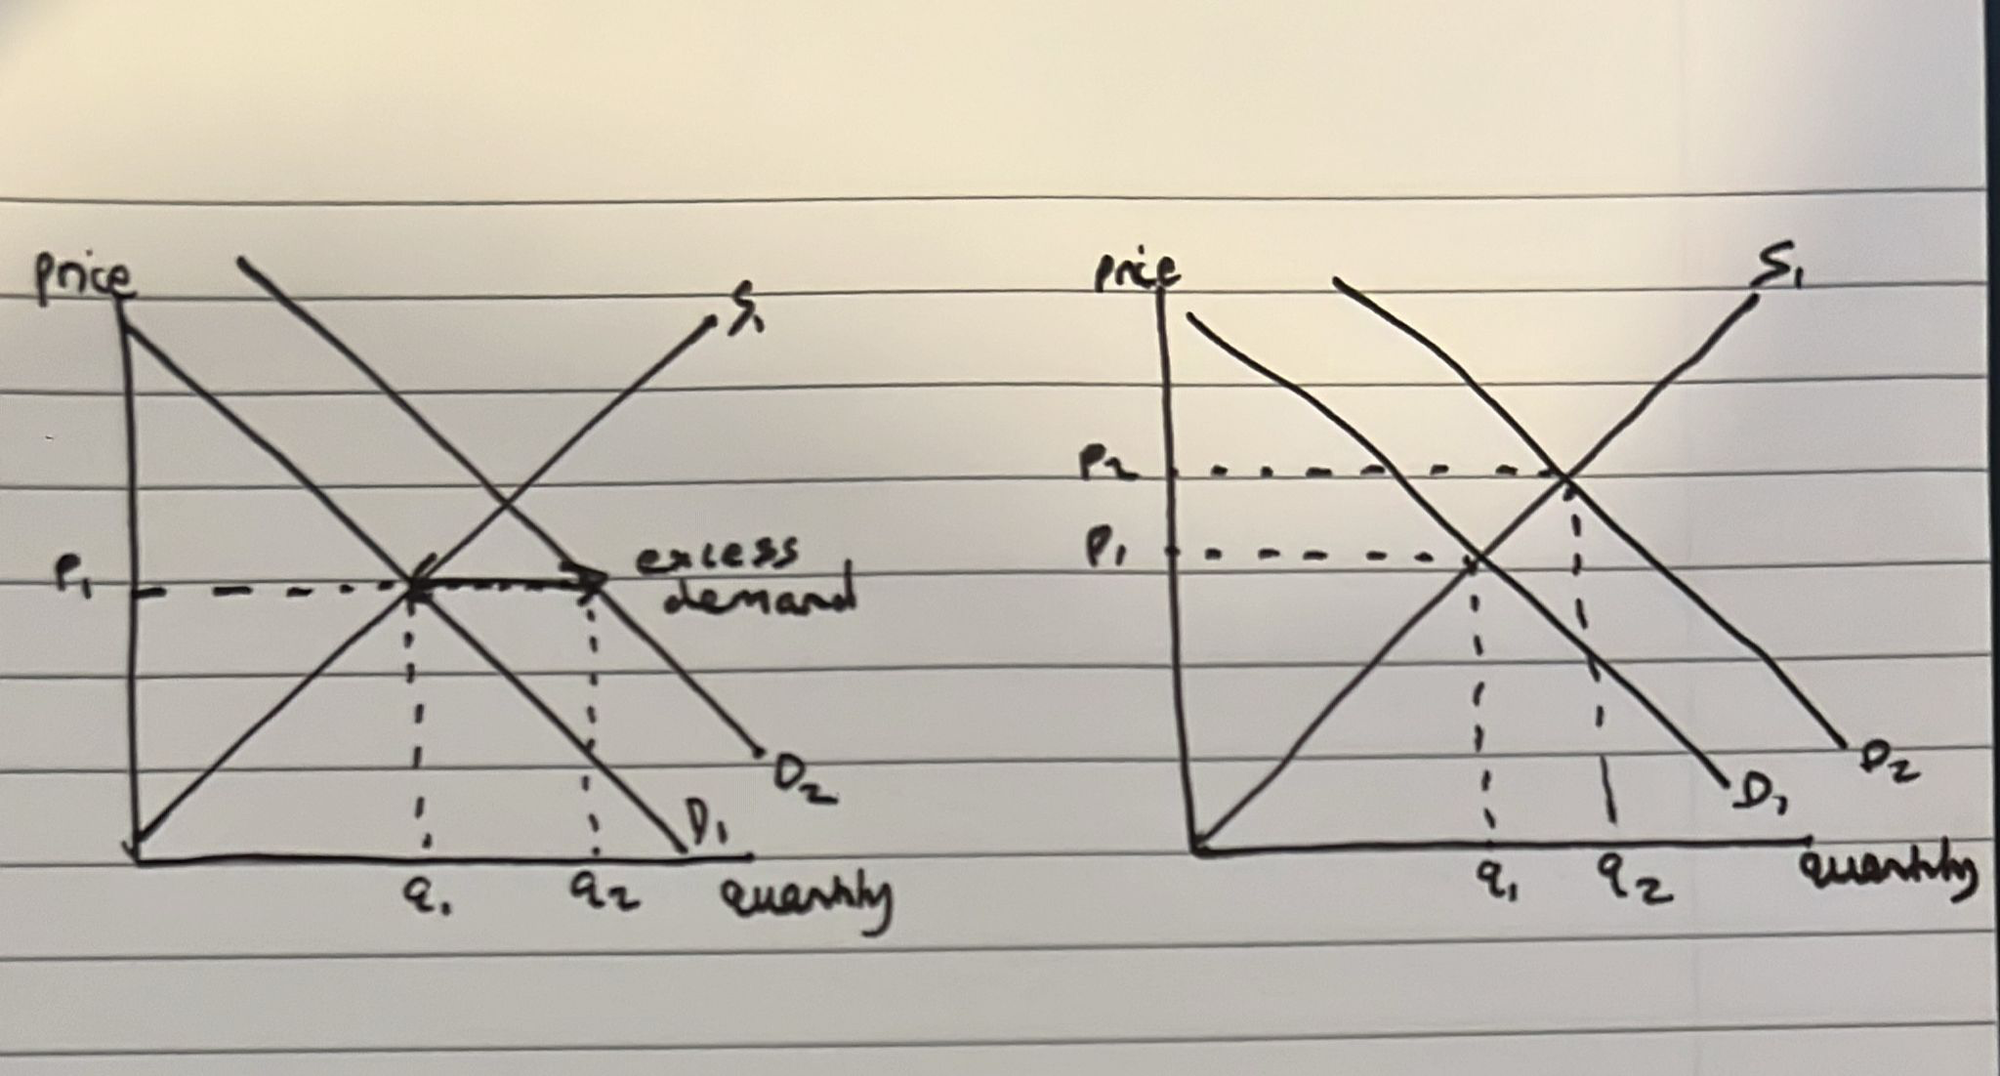 price
S1
P1
excess
demand
D2
D1
q1
q2
quantity
price
S1
P2
P1
D2
D1
q1
q2
quantity